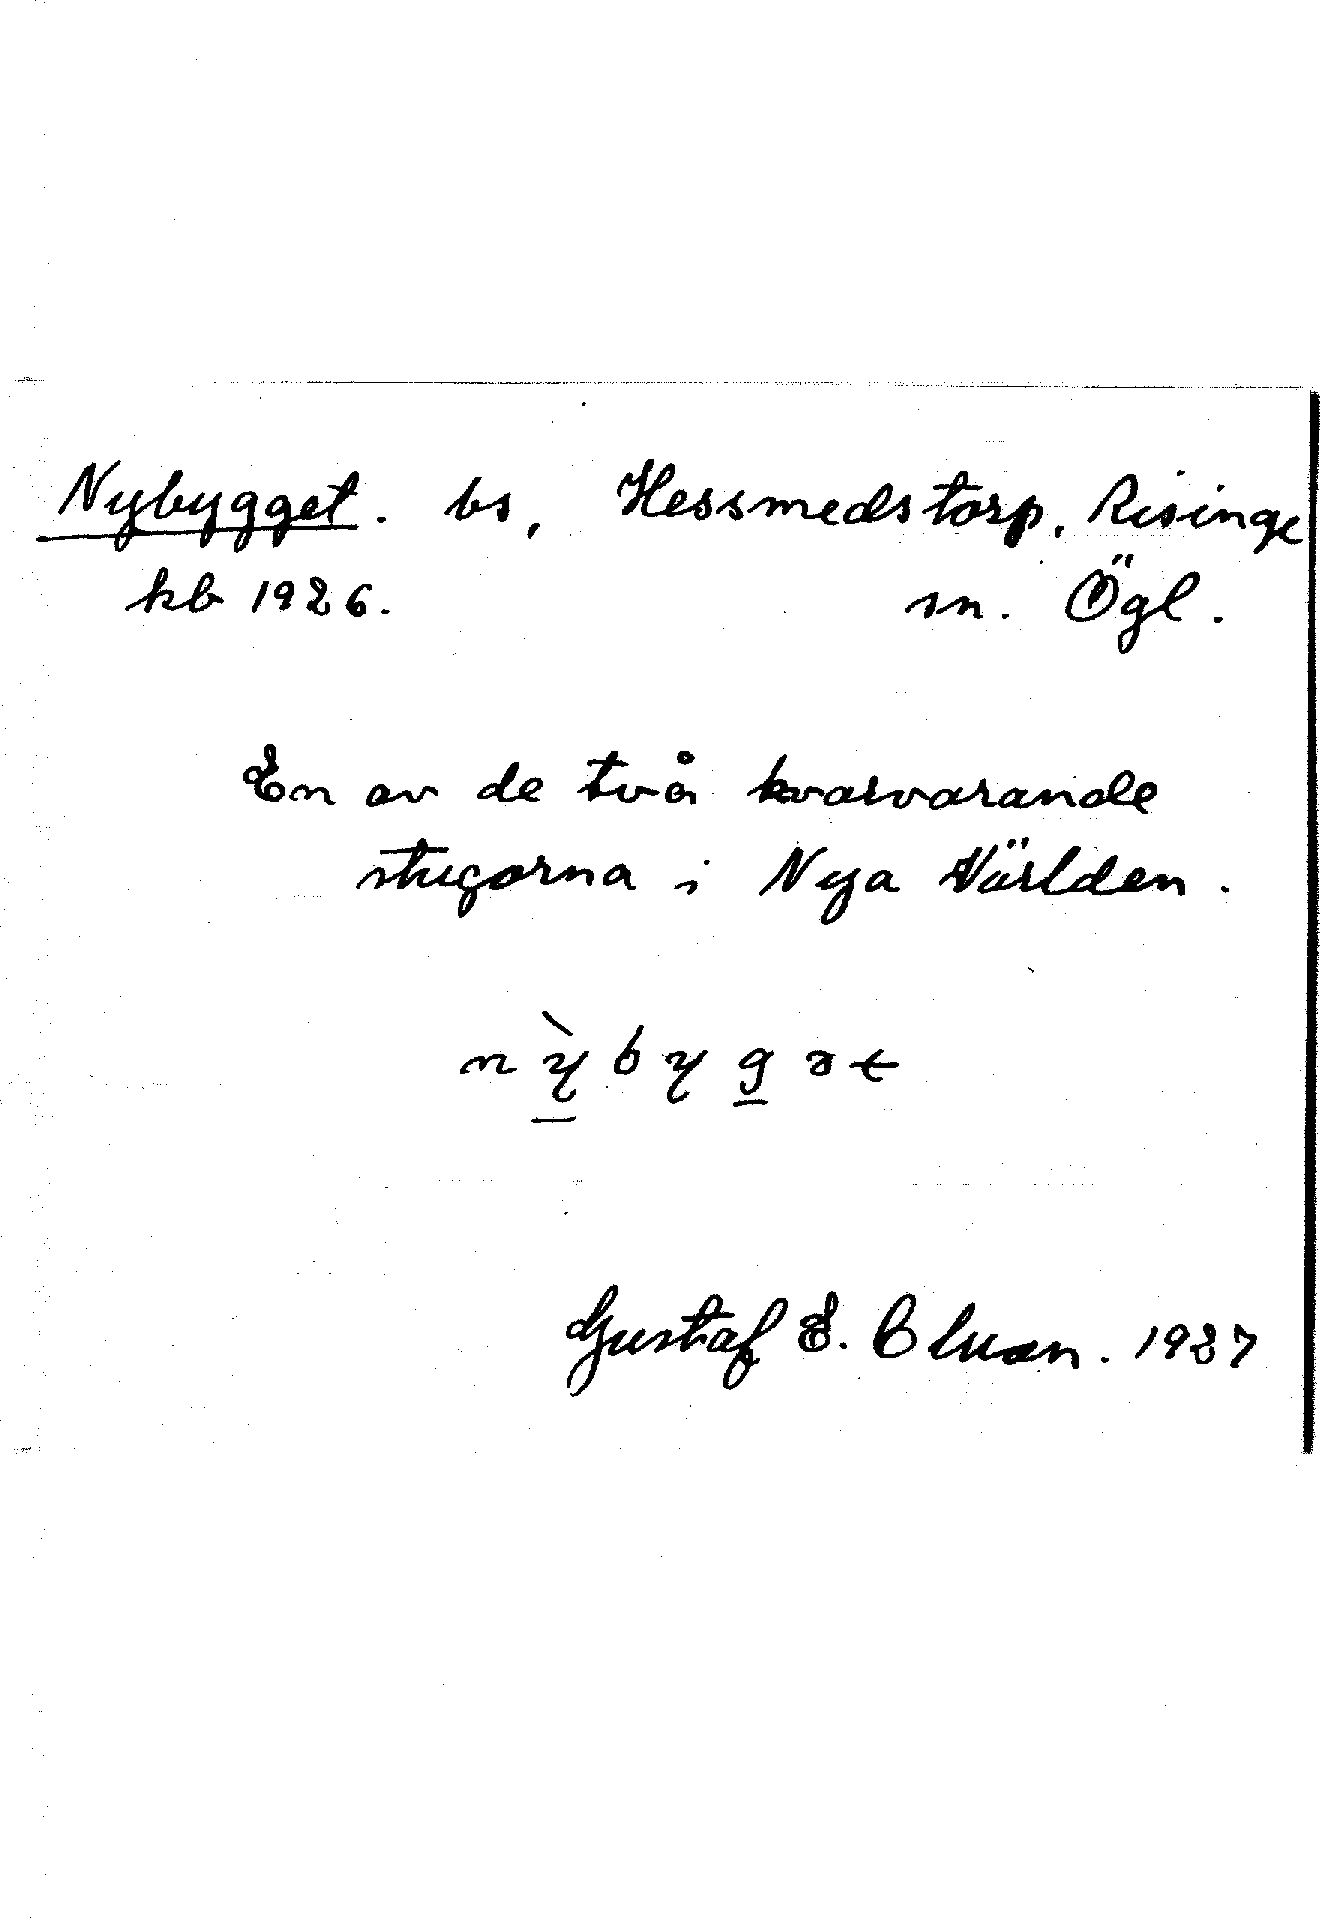 Nybygget. bs, Hessmedstorp, Risinge
kb 1926. sn. Ögl.
En av de två kvarvarande
stugorna i Nya Världen.
nỳbygət
Gustaf E. Cluan. 1927